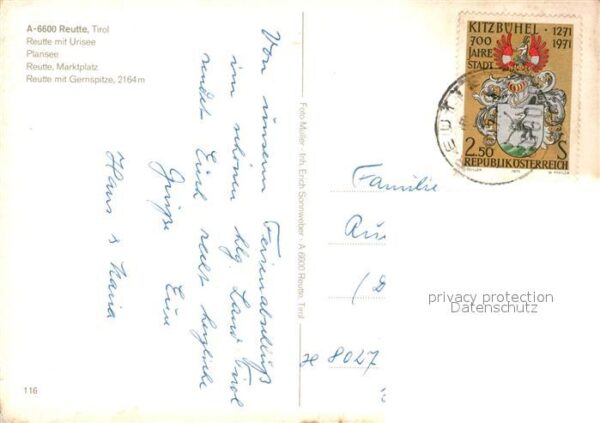 A-6600 Reutte, Tirol
Reutte mit Urisee
Plansee
Reutte, Marktplatz
Reutte mit Gernspitze, 2164m
Von unserem Ferienabschluß
im schönen hlg. Land Tirol
sendet Euch recht herzliche
Grüße Eure
Hans &
116
Foto Müller · Inh. Erich Sonnweber · A 6600 Reutte, Tirol
KITZBÜHEL · 1271
700 1971
JAHRE
STADT
2.50 S
REPUBLIK ÖSTERREICH
Familie
(D
8027
privacy protection
Datenschutz